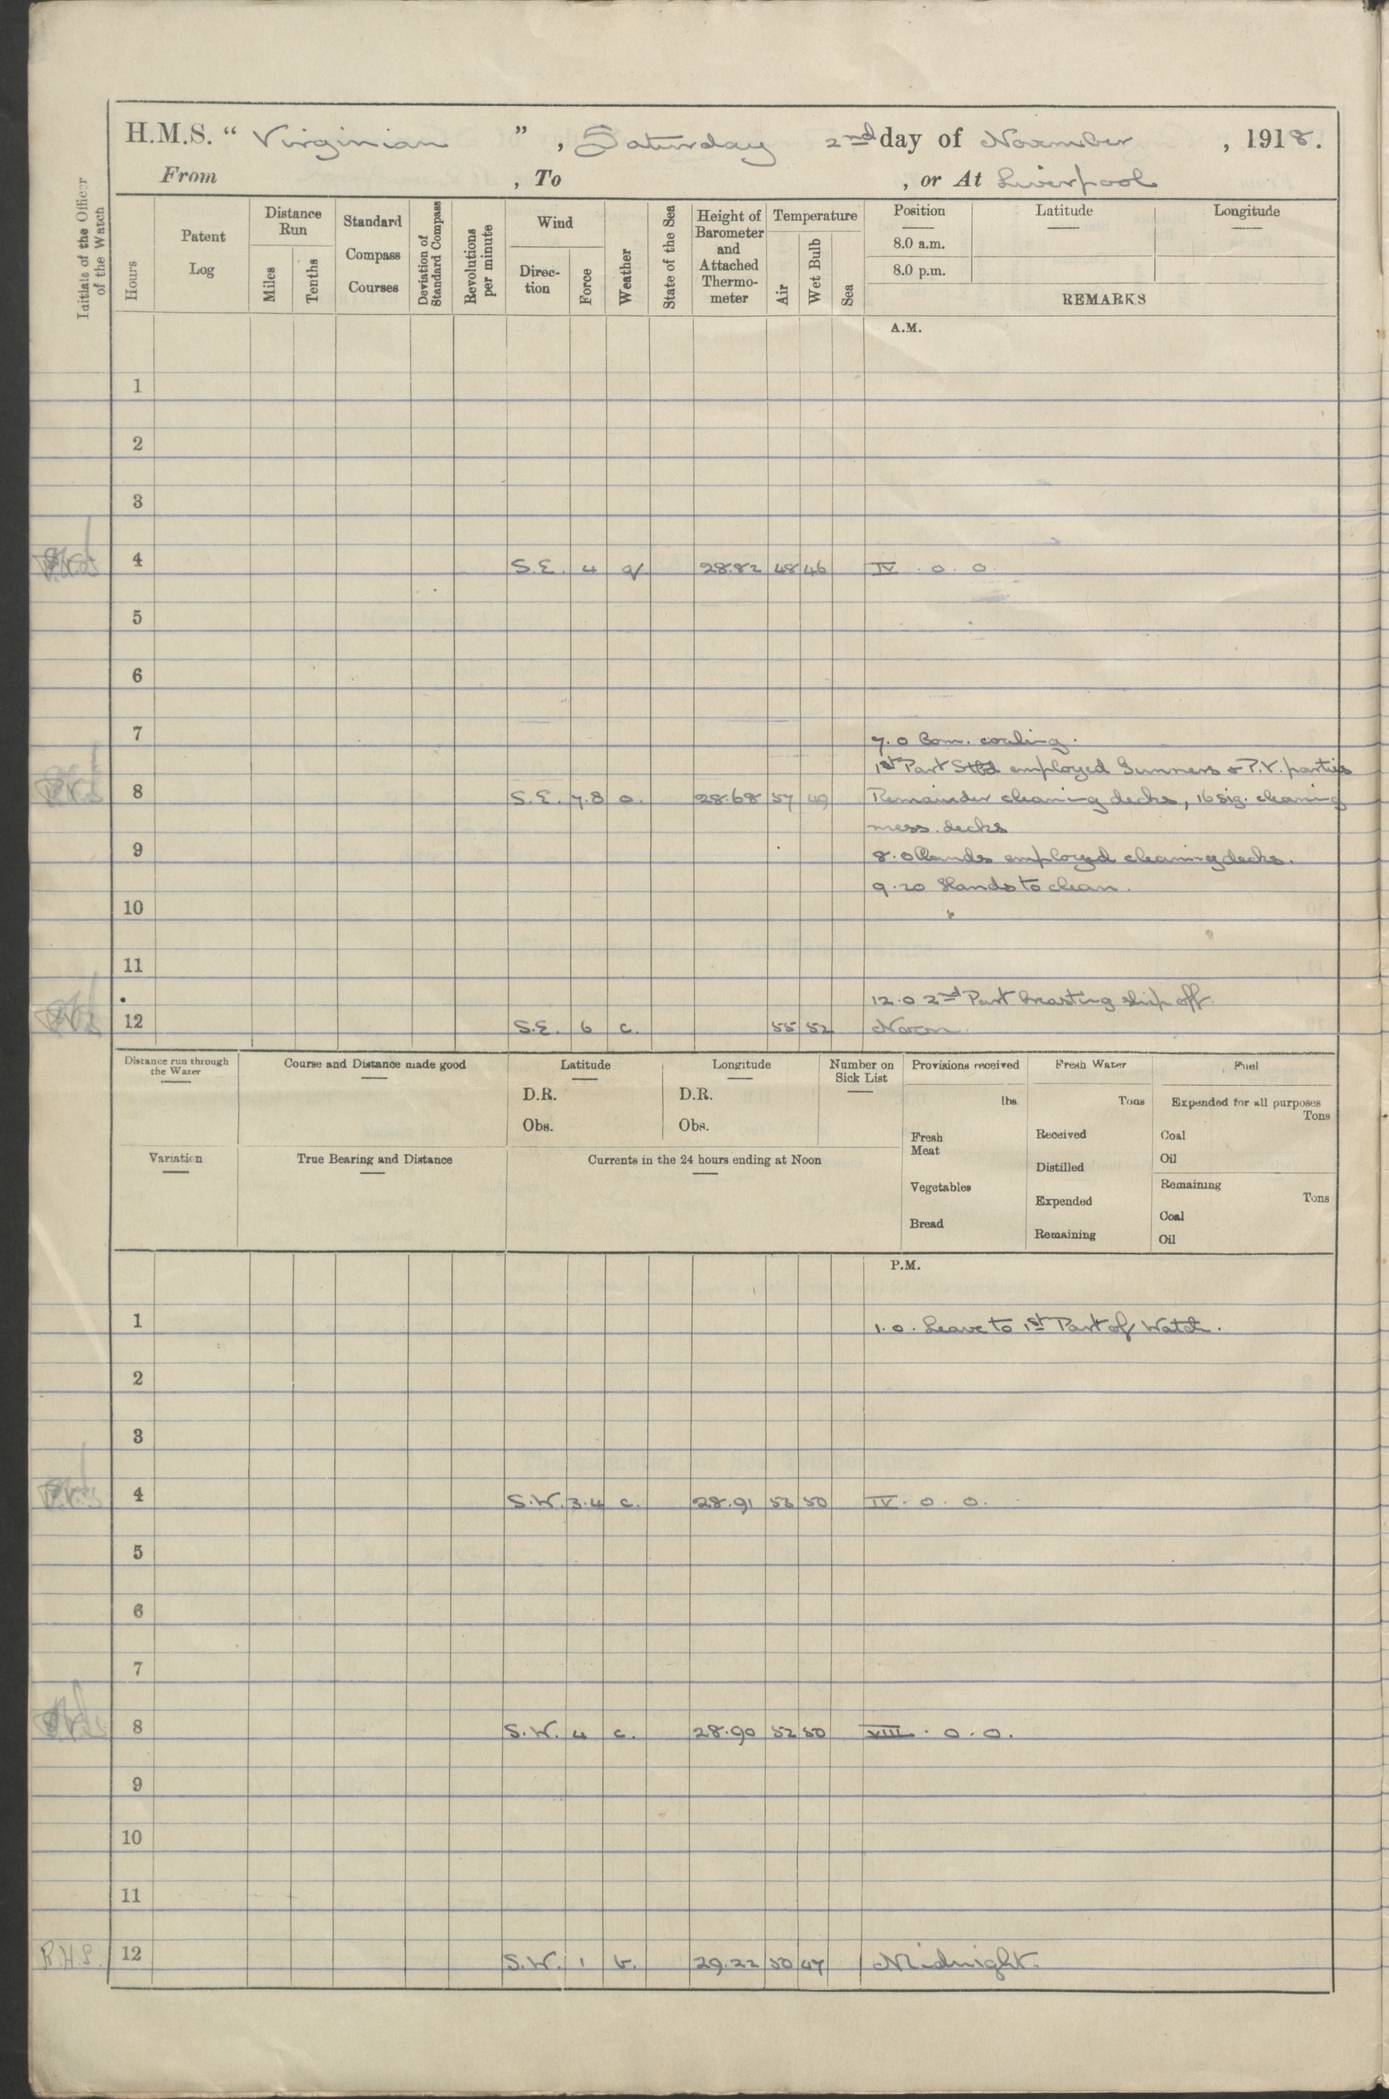 H.M.S. " Virginian " , Saturday 2nd day of November , 1918.
From , To , or At Liverpool
Initials of the Officer of the Watch
Hours
Patent Log
Distance Run
Miles
Tenths
Standard Compass Courses
Deviation of Standard Compass
Revolutions per minute
Wind
Direc-tion
Force
Weather
State of the Sea
Height of Barometer and Attached Thermo-meter
Temperature
Air
Wet Bulb
Sea
Position Latitude Longitude
8.0 a.m.
8.0 p.m.
REMARKS
A.M.
1
2
3
4 S.E. 4 q 28.82 48 46 IV . 0 . 0
5
6
7 7.0 Com. coaling.
1st Part Stbd employed Gunners & P.V. parties
8 S.E. 7.8 o. 28.68 57 49 Remainder cleaning decks, 16 sig. cleaning
mess decks
9 8.0 Hands employed cleaning decks.
9.20 Hands to clean.
10
11
12.0 2nd Part breasting ship off
12 S.E. 6 c. 55 52 Noon.
Distance run through the Water
Course and Distance made good
Latitude
D.R.
Obs.
Longitude
D.R.
Obs.
Number on Sick List
Provisions received
lbs.
Fresh Meat
Vegetables
Bread
Fresh Water
Tons
Received
Distilled
Expended
Remaining
Fuel
Expended for all purposes
Tons
Coal
Oil
Remaining
Tons
Coal
Oil
Variation
True Bearing and Distance
Currents in the 24 hours ending at Noon
P.M.
1 1.0. Leave to 1st Part of Watch.
2
3
4 S.W. 3.4 c. 28.91 53 50 IV . 0 . 0.
5
6
7
8 S.W. 4 c. 28.90 52 50 VIII . 0 . 0.
9
10
11
R.H.S. 12 S.W. 1 b. 29.22 50 47 Midnight.